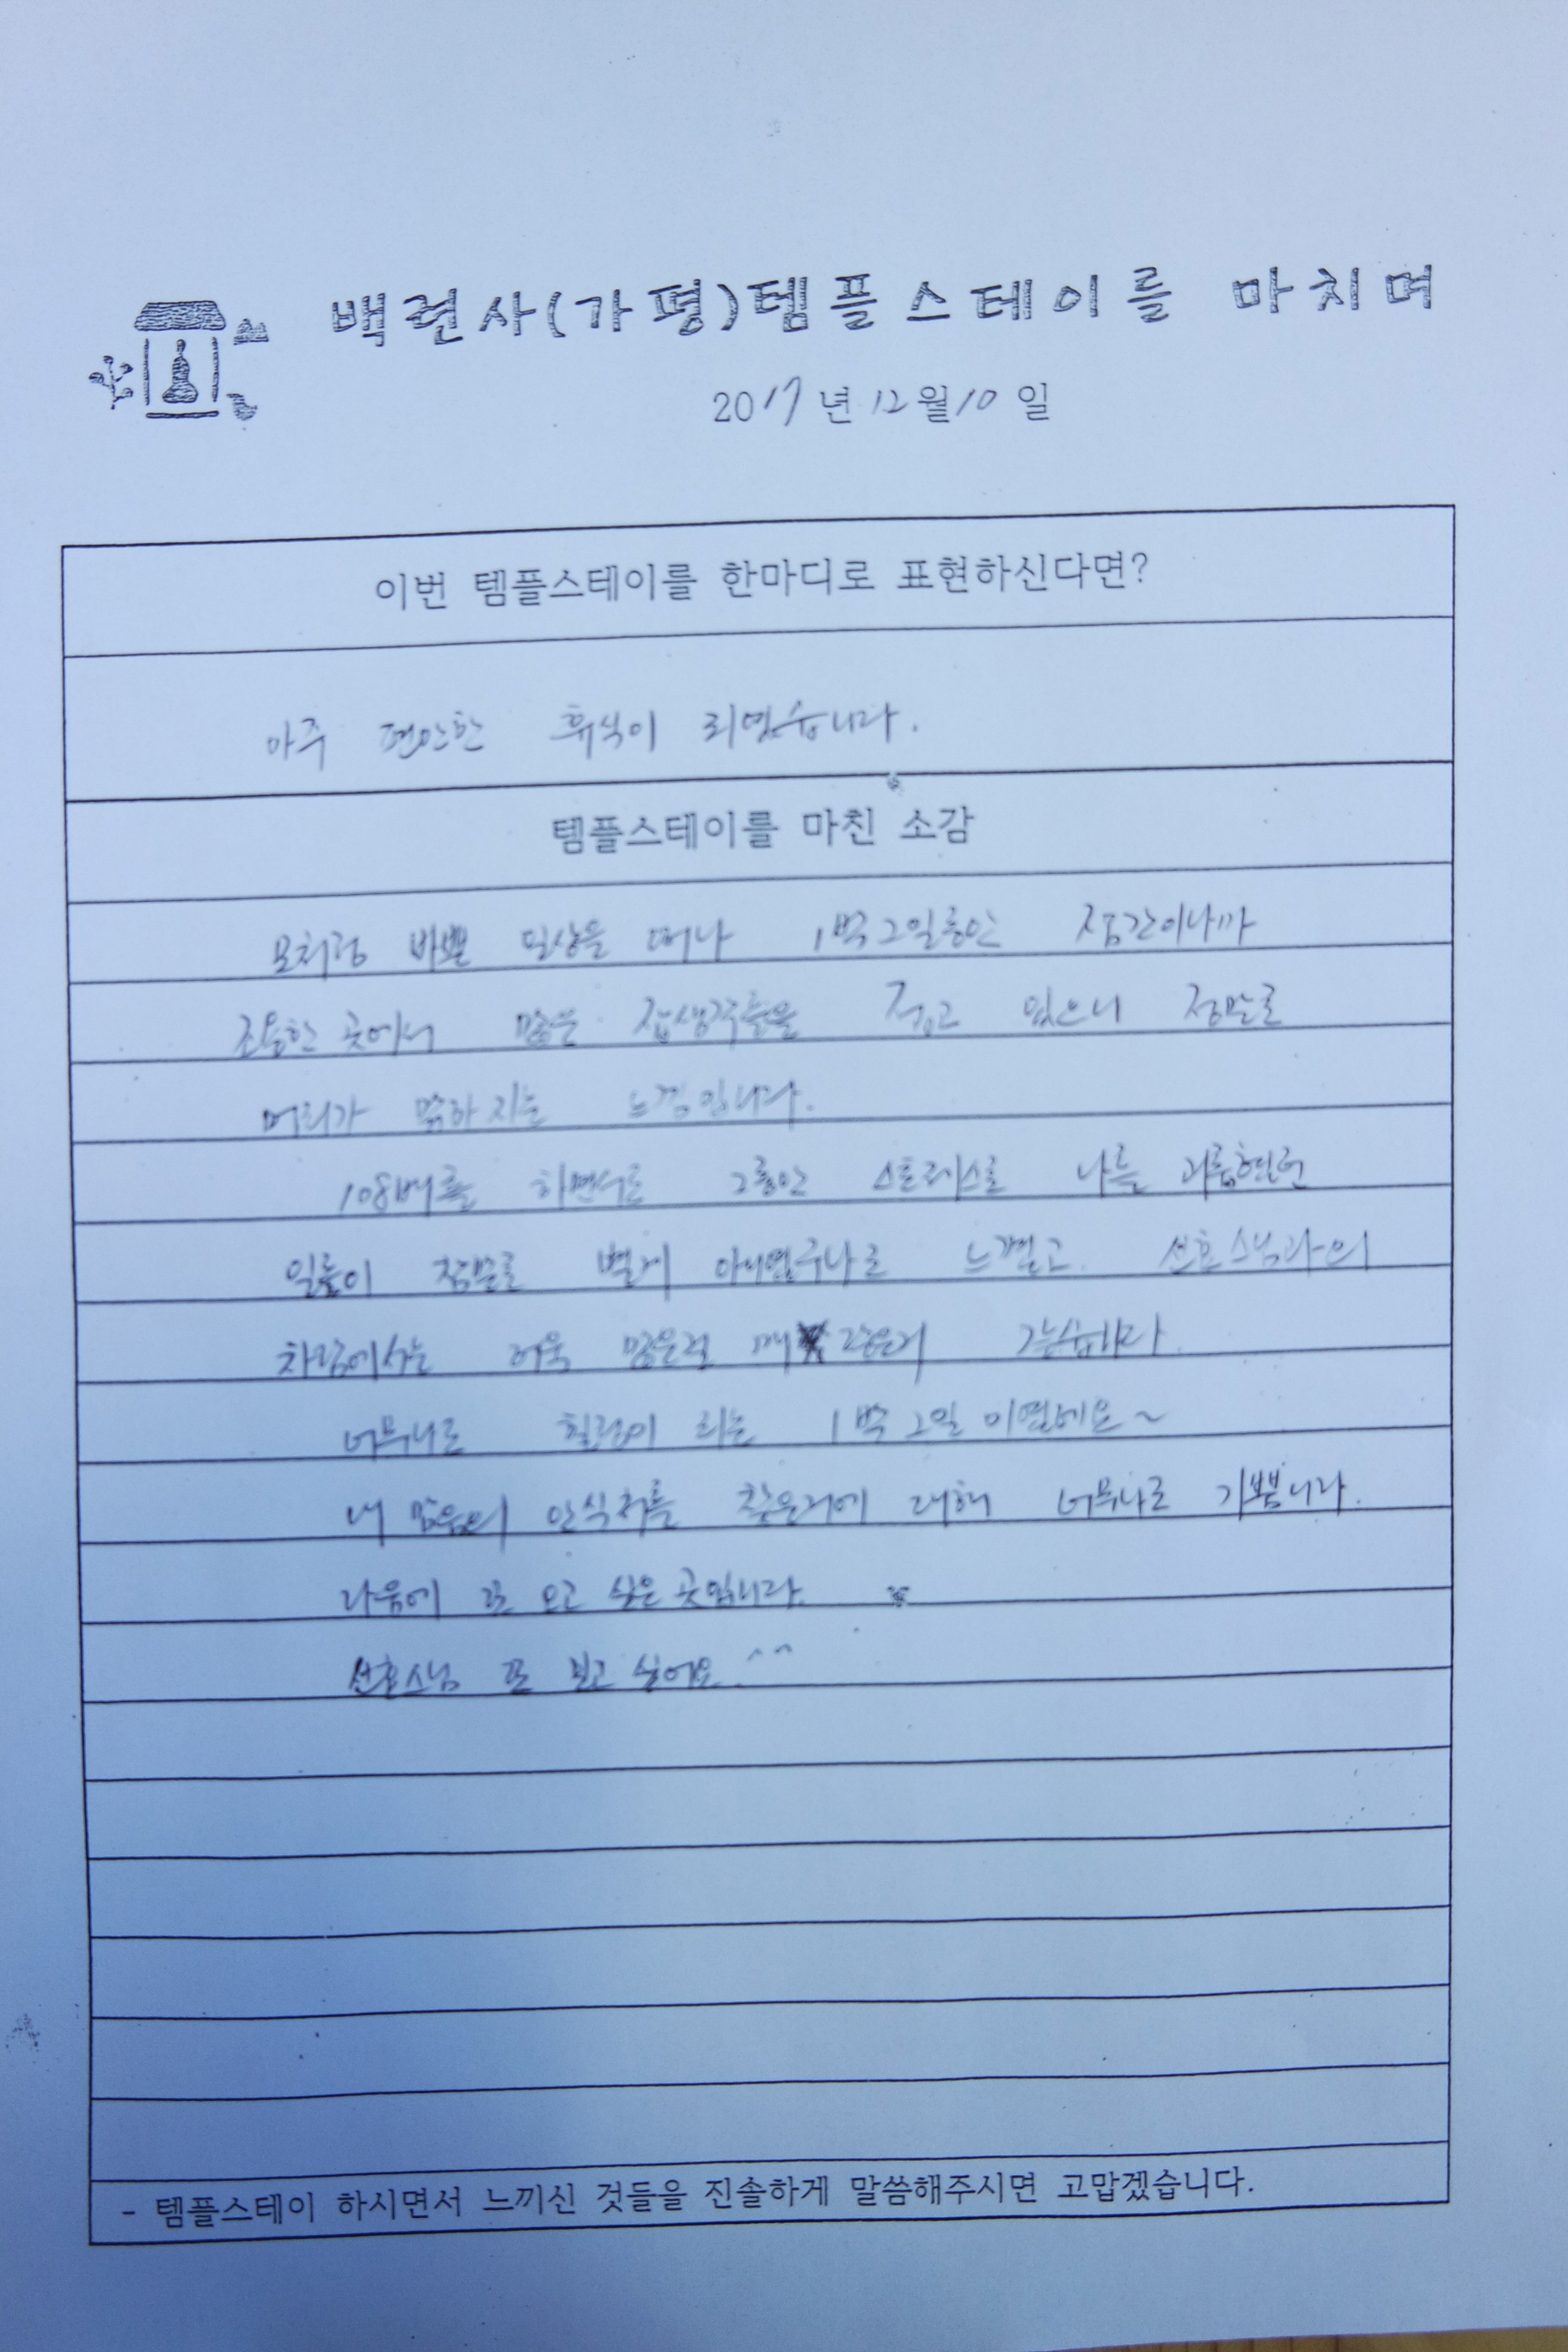 백련사(가평)템플스테이를 마치며
2017년 12월 10일
이번 템플스테이를 한마디로 표현하신다면?
아주 편안한 휴식이 되었습니다.
템플스테이를 마친 소감
모처럼 바쁜 일상을 떠나 1박2일동안 잠깐이나마
조용한 곳에서 많은 잡생각들을 접고 있으니 정말로
머리가 맑아지는 느낌입니다.
108배를 하면서도 그동안 스트레스로 나를 괴롭혔던
일들이 정말로 별게 아니였구나로 느꼈고. 선효스님과의
차담에서는 더욱 많은걸 깨달은거 같습니다.
너무나도 힐링이 되는 1박2일이였네요~
내 마음의 안식처를 찾은거에 대해 너무나도 기쁩니다.
다음에 또 오고 싶은 곳입니다.
선효스님 또 보고 싶어요. ^^
- 템플스테이 하시면서 느끼신 것들을 진솔하게 말씀해주시면 고맙겠습니다.